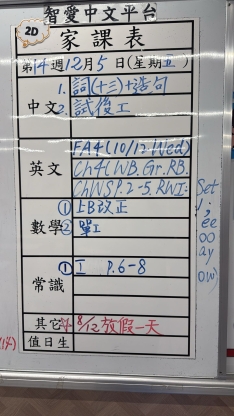 智愛中文平台
2D
家課表
第14週12月5日(星期五)
中文
1. 詞(十三)+造句
2. 試後工
英文
FA4(10/12.Wed)
Ch4(WB.Gr.RB.
ChWSP.2-5.RWI:
Set
ee
oo
ay
ow)
數學
① LB改正
② 單工
常識
① 工 P.6-8
其它
8/12放假一天
值日生